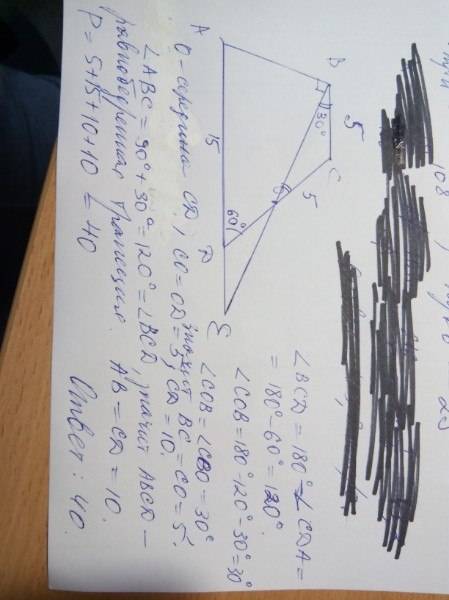 B
5
C
30°
5
O
A
15
60°
D
E
∠BCD = 180° - ∠CDA =
= 180° - 60° = 120°
∠COB = 180° - 120° - 30° = 30°
∠COB = ∠CBO = 30°
значит BC = CO = 5.
O - середина CD, CO = OD = 5, CD = 10.
∠ABC = 90° + 30° = 120° = ∠BCD, значит ABCD -
равнобедренная трапеция. AB = CD = 10.
P = 5 + 15 + 10 + 10 = 40
Ответ: 40.